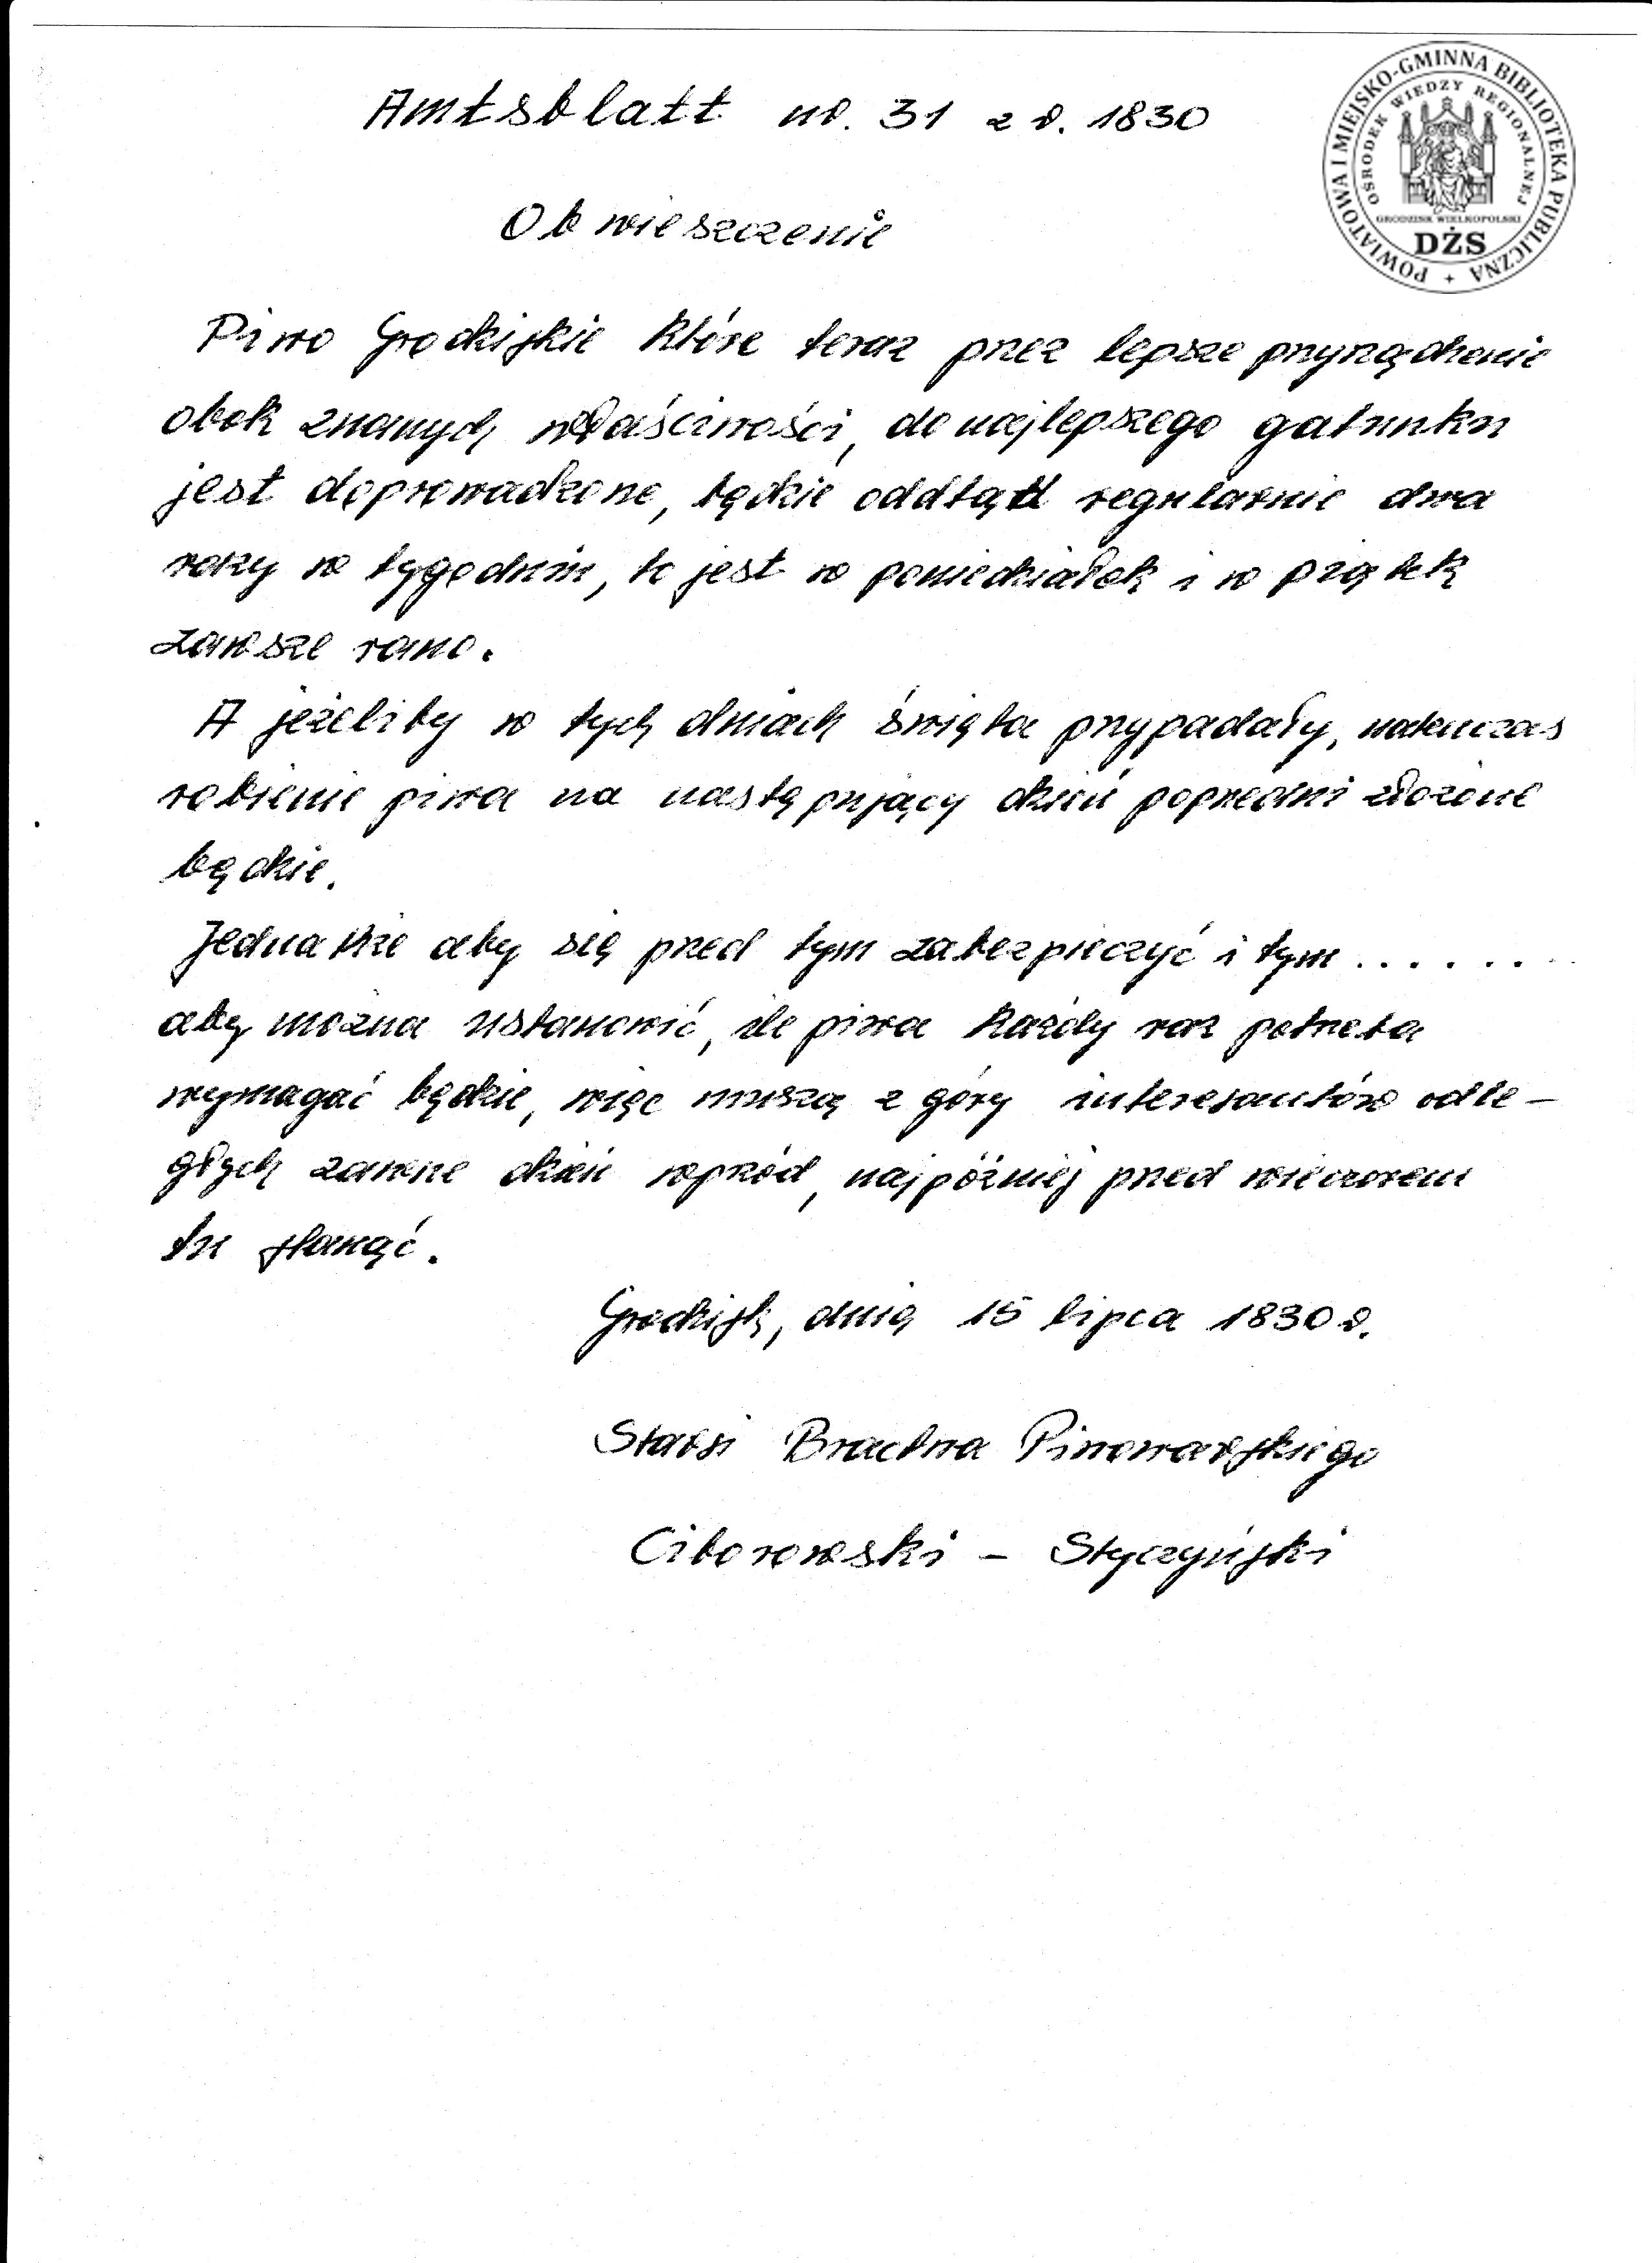 Amtsblatt nr. 31 z r. 1830
POWIATOWA I MIEJSKO-GMINNA BIBLIOTEKA PUBLICZNA +
OŚRODEK WIEDZY REGIONALNEJ
GRODZISK WIELKOPOLSKI
DŻS
Obwieszczenie
Piwo Grodziskie które teraz przez lepsze przyrządzenie
obok znanych właściwości, do najlepszego gatunku
jest doprowadzone, będzie oddtąd regularnie dwa
razy w tygodniu, to jest w poniedziałek i w piątek
zawsze rano.
A jeżeliby w tych dniach święta przypadały, natenczas
robienie piwa na następujący dzień poprzedni złożone
będzie.
Jednakże aby się przed tym zabezpieczyć i tym .......
aby można ustanowić, ile piwa każdy raz potrzeba
wymagać będzie, więc muszą z góry interesantów odle-
głych zawsze dzień wprzód, najpóźniej przed wieczorem
tu stanąć.
Grodzisk, dnia 15 lipca 1830 r.
Starsi Bractwa Piwowarskiego
Ciborowski - Styczyński